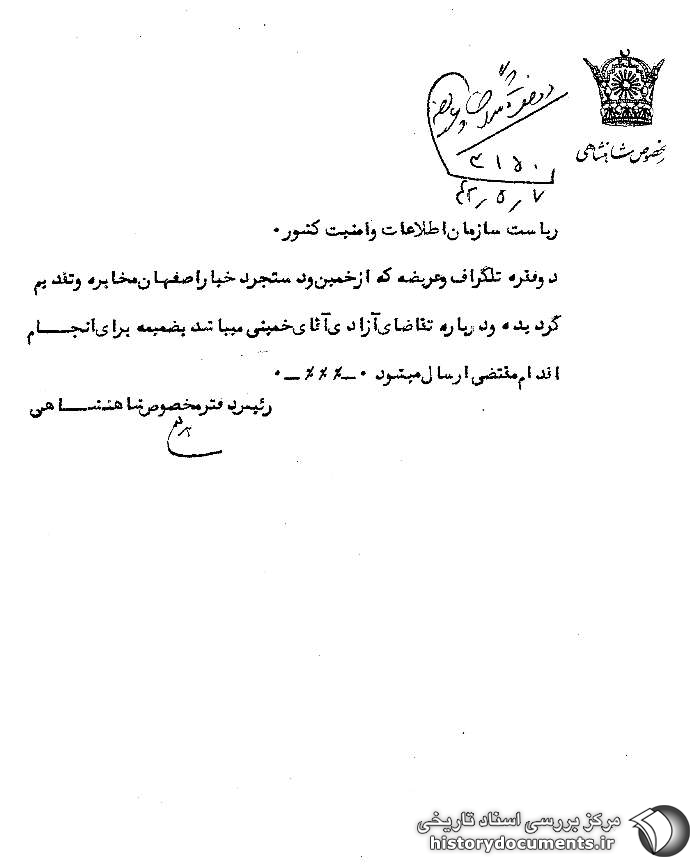 مخصوص شاهنشاهی
۳۱۵۰
۴۲٫۵٫۷
ریاست سازمان اطلاعات و امنیت کشور ۰
دوفقره تلگراف وعریضه که ازخمین ود ستجرد خیاراصفهان مخابره وتقدیم
گردیده ودرباره تقاضای آزادی آقای خمینی میباشد بضمیمه برای انجام
اقدام مقتضی ارسال میشود ۰
رئیس دفترمخصوص شاهنشاهی
مرکز بررسی اسناد تاریخی
historydocuments.ir